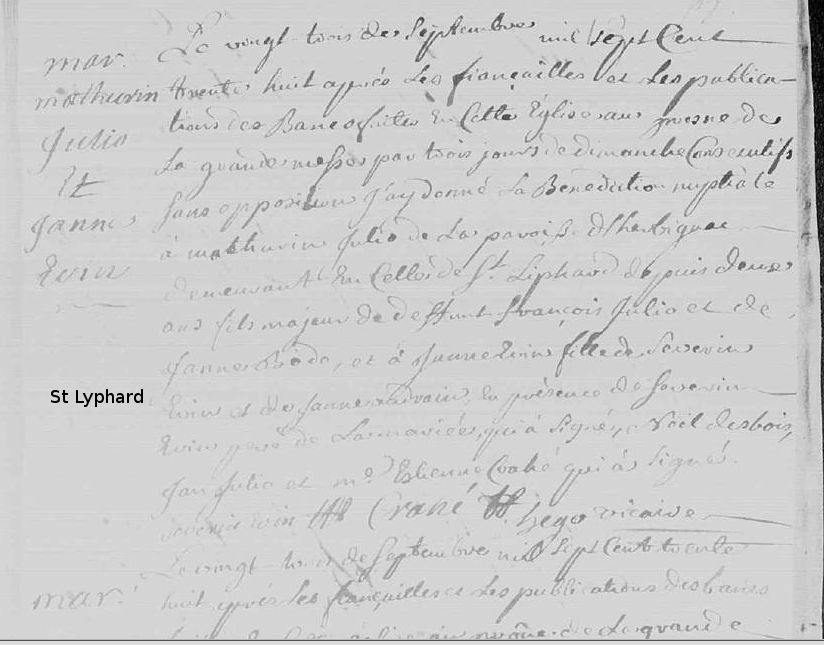 mar.
mathurin
Julio
Et
Janne
Evin
Le vingt trois de Septembre mil sept Cent
trente huit après Les fiançailles et Les publica-
tions des Bancs faites En Cette Eglise au prosne de
La grande messe par trois jours de dimanche Consecutifs
sans opposition J'ay donné La Bénédiction nuptiale
à mathurin Julio de La paroisse d'herbignac
demeurant En Celle de St Liphard depuis deux
ans fils majeur de deffunt françois Julio et de
Janne Bode, et à Janne Evin fille de Séverin
Evin et de Janne En présence de Severin
Evin pere de La mariée, qui à Signé, Noël desbois,
Jan Julio et me Estienne Crahé qui à Signé.
severin Evin Crahé Lego vicaire
St Lyphard
mar.
Le vingt trois de Septembre mil Sept Cent trente
huit après Les fiançailles et Les publications des bancs
au prône de La grande